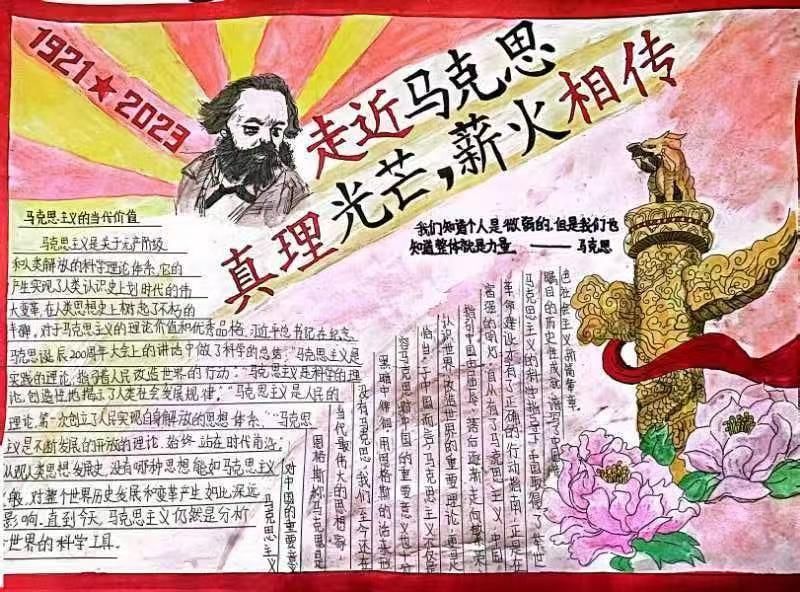 1921★2023
走近马克思
真理光芒，薪火相传
我们知道个人是微弱的，但是我们也
知道整体就是力量 —— 马克思
马克思主义的当代价值
马克思主义是关于无产阶级
和人类解放的科学理论体系，它的
产生实现了人类认识史上划时代的伟
大变革，在人类思想史上树起了不朽的
丰碑，对于马克思主义的理论价值和优秀品格，习近平总书记在纪念
马克思诞辰200周年大会上的讲话中做了科学的总结："马克思主义是
实践的理论，指引着人民改造世界的行动；""马克思主义是科学的理
论，创造性地揭示了人类社会发展规律；""马克思主义是人民的
理论，第一次创立了人民实现自身解放的思想体系、""马克思
主义是不断发展的开放的理论，始终站在时代前沿；
从观人类思想发展史，没有哪种思想能如马克思主义
般，对整个世界历史发展和变革产生如此深远
影响，直到今天，马克思主义仍然是分析
世界的科学工具。
马克思主义
对中国的重要意
恩格斯称马克思是
当代最伟大的思想家，
没有马克思，我们至今还在
黑暗中徘徊，用恩格斯的话来形
容马克思对中国的重要意义也十分
恰当，于中国而言，马克思主义不仅是
认识世界、改造世界的重要理论，更是
指引中国走出落后，逐渐走向繁荣
富强的明灯，自从有了马克思主义，中国
革命建设才有了正确的行动指南，正是在
马克思主义的科学指导下，中国取得了举世
瞩目的历史性成就，谱写了中国特
色社会主义新篇章。